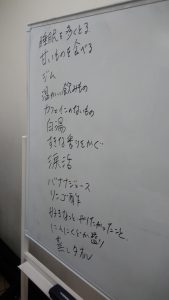 睡眠を多くとる
甘いものを食べる
ジム
温かい飲みもの
カフェインのないもの
白湯
すきな香りをかぐ
涙活
バナナジュース
リンゴ酢
好きなことやりたかったこと
にんにくどか盛り
蒸しタオル